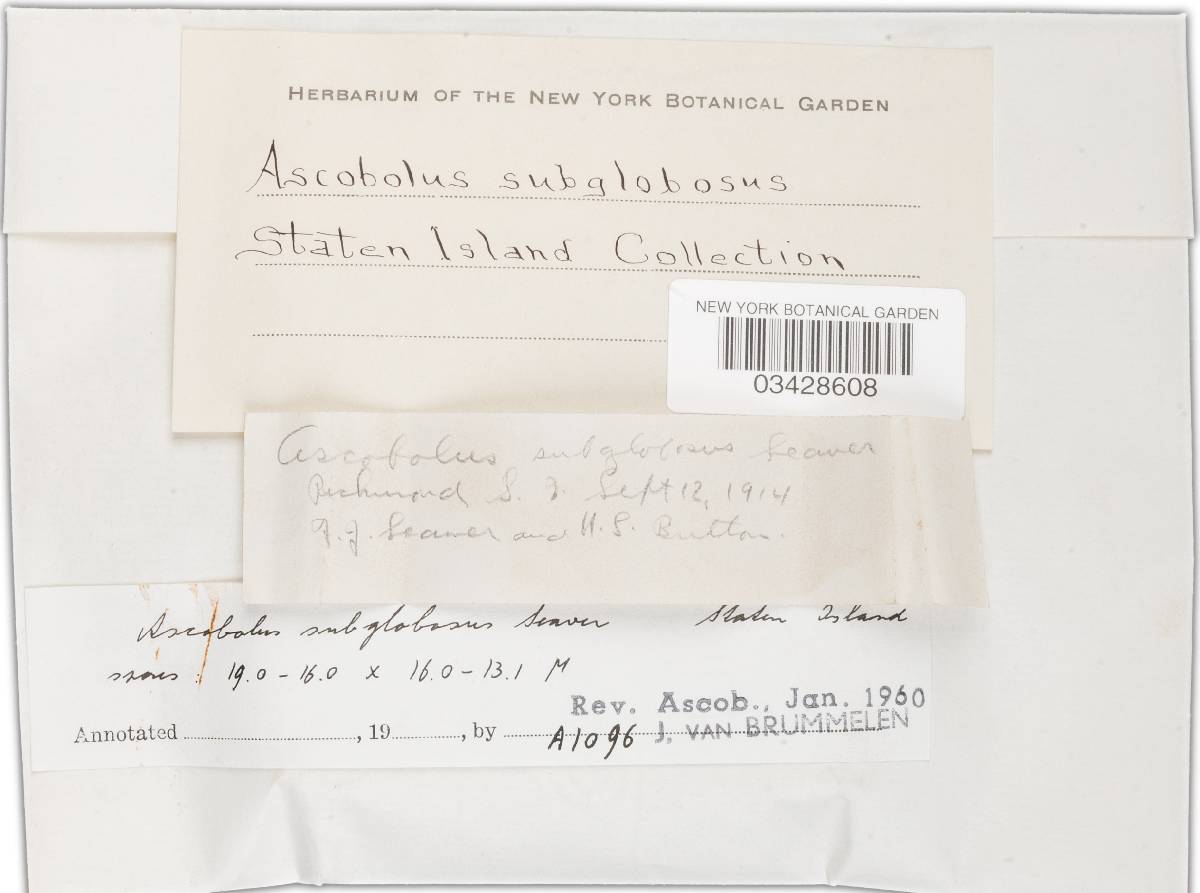 HERBARIUM OF THE NEW YORK BOTANICAL GARDEN
Ascobolus subglobosus
Staten Island Collection
NEW YORK BOTANICAL GARDEN
03428608
Ascobolus subglobosus Seaver
Richmond S. I. Sept 12, 1914
F. J. Seaver and H. S. Britton.
Ascobolus subglobosus Seaver Staten Island
spores: 19.0 - 16.0 x 16.0 - 13.1 μ
Rev. Ascob., Jan. 1960
Annotated , 19 , by A1096 J. VAN BRUMMELEN